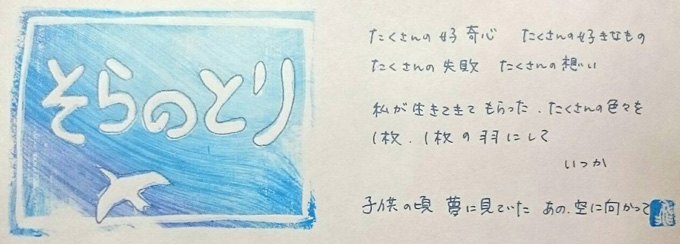 そらのとり
たくさんの好奇心　たくさんの好きなもの
たくさんの失敗　たくさんの想い
私が生きてきてもらった、たくさんの色々を
1枚、1枚の羽にして
いつか
子供の頃 夢に見ていた あの、空に向かって
飛